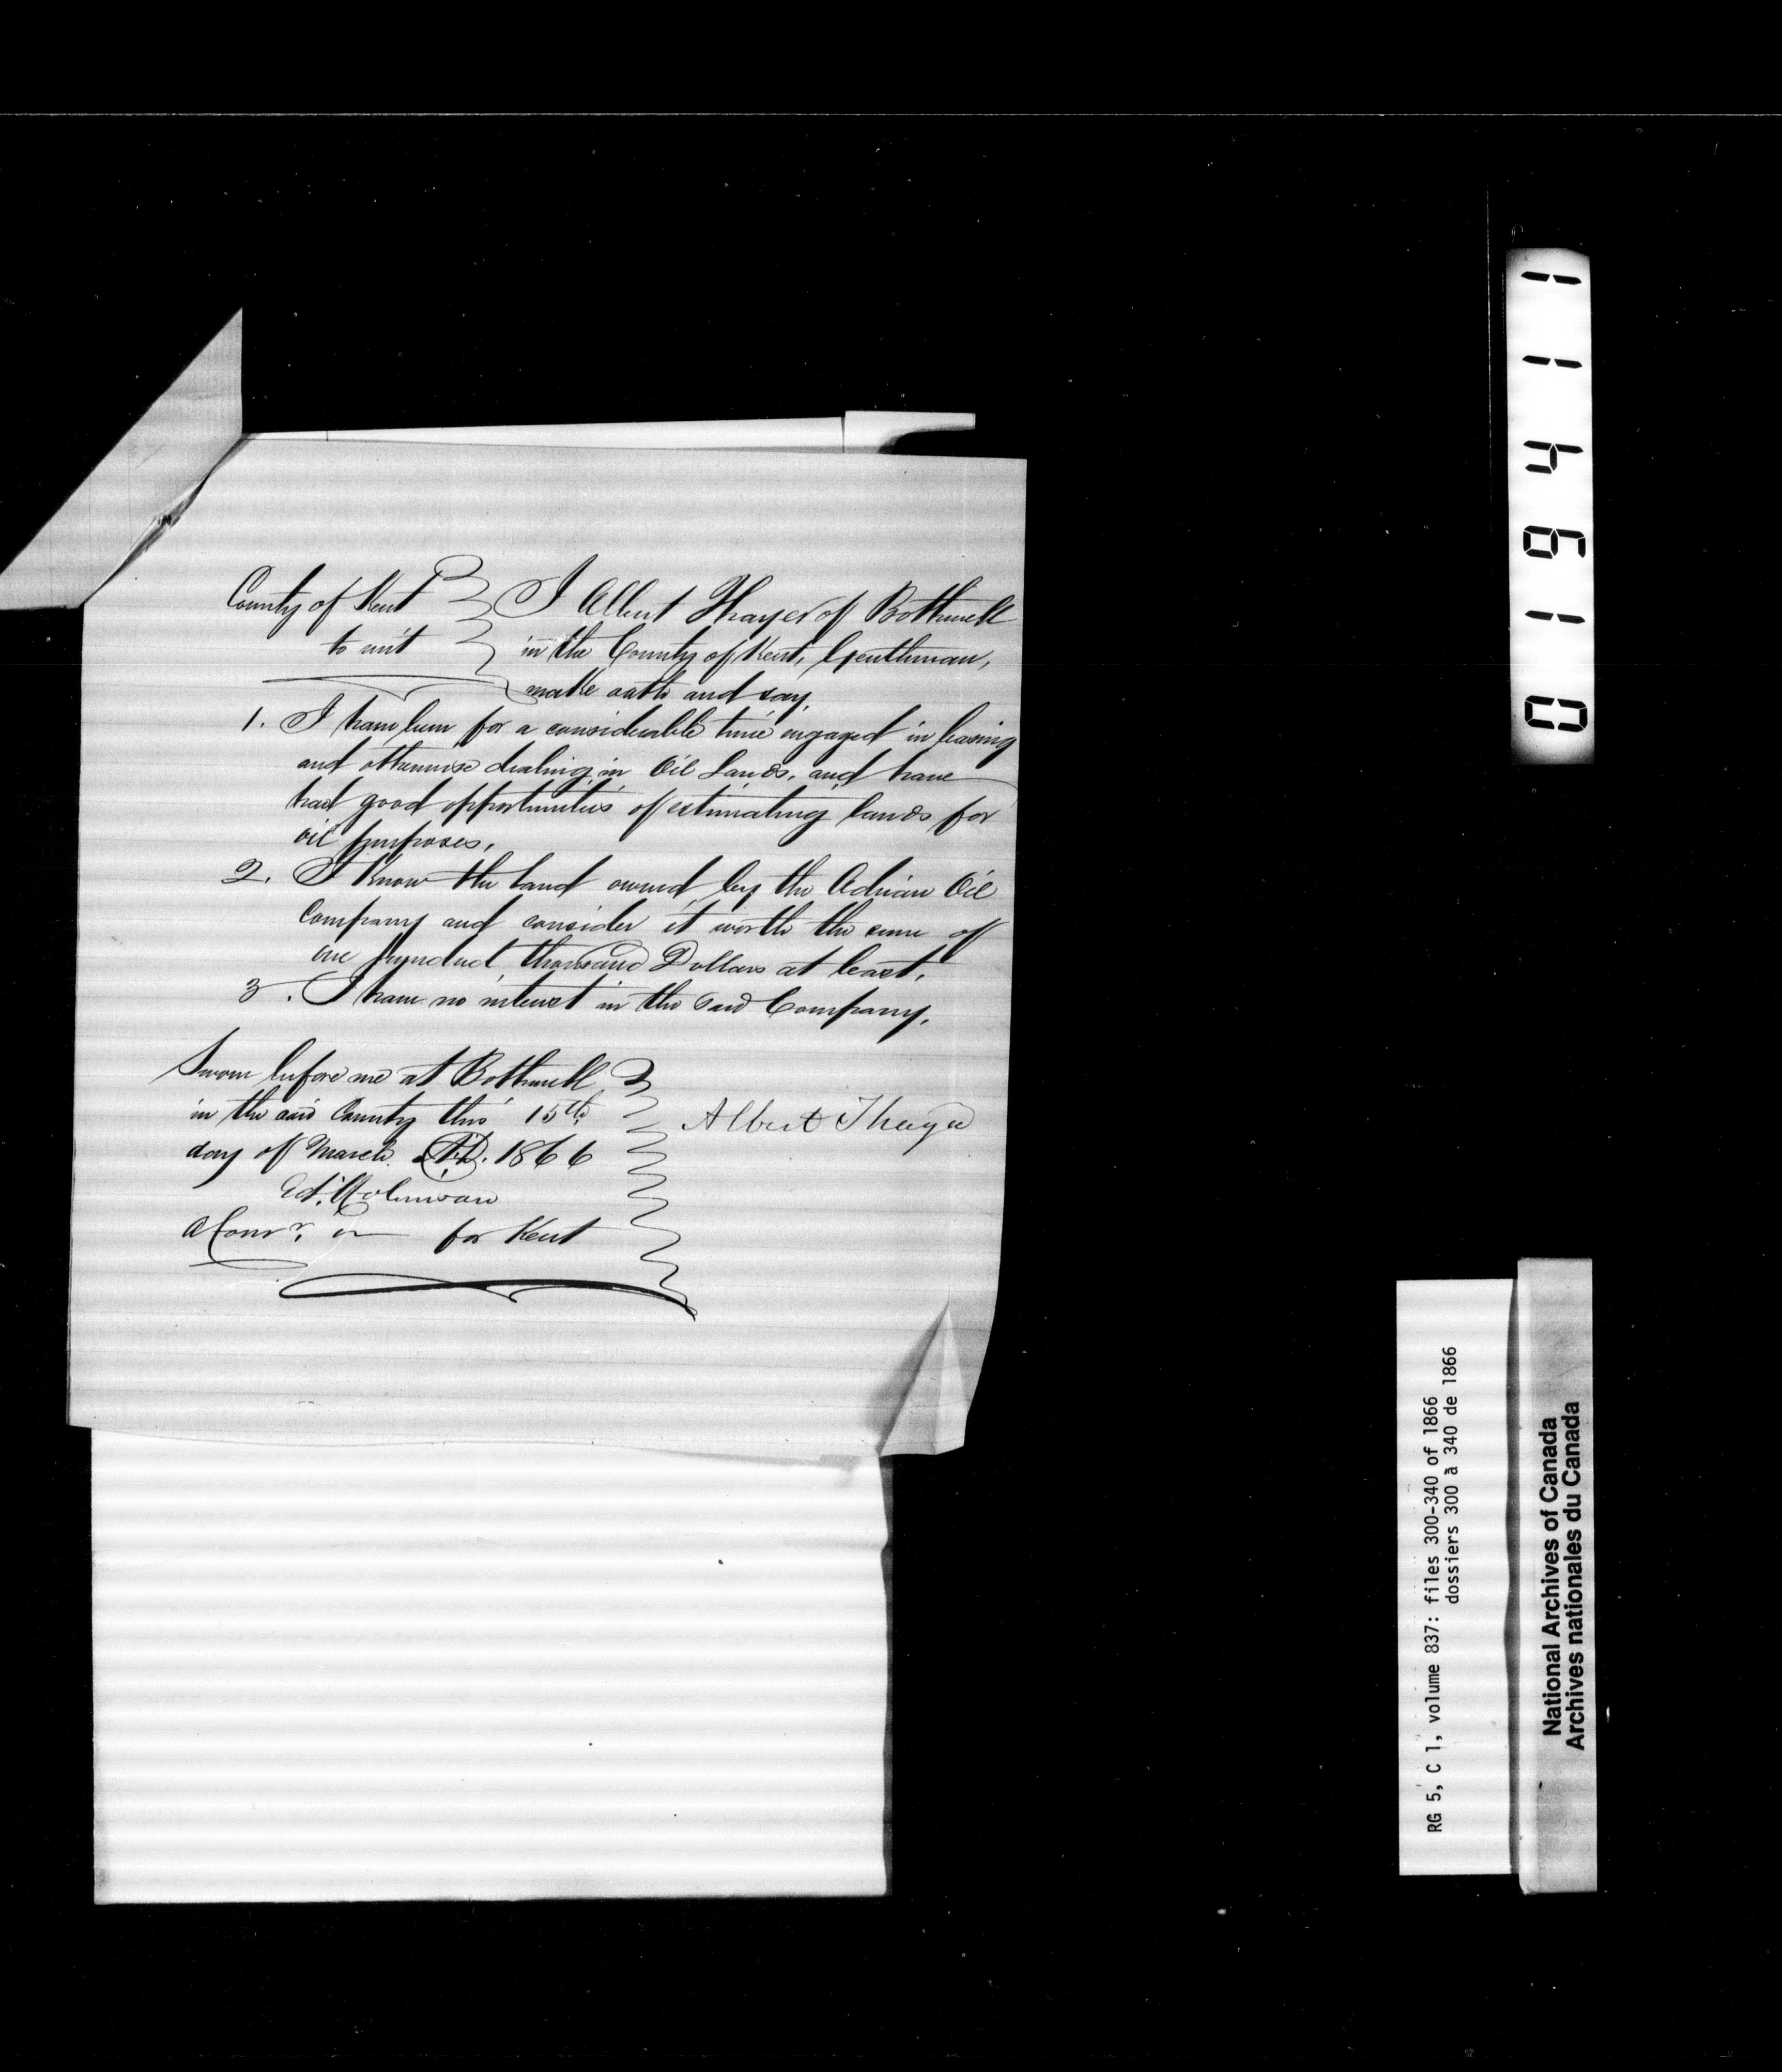 County of Kent
to wit
I Albert Thayer of Bothwell
in the County of Kent, Gentleman,
make oath and say.
1. I have been for a considerable time engaged in leasing
and otherwise dealing in Oil Lands, and have
had good opportunities of estimating lands for
oil purposes.
2. I know the land owned by the Adrian Oil
Company and consider it worth the sum of
one hundred thousand Dollars at least.
3. I have no interest in the said Company.
Sworn before me at Bothwell
in the said County this 15th
day of March A.D. 1866
Albert Thayer
A Comr. in for Kent
0 1 6 4 1 1
RG 5, C 1, volume 837: files 300-340 of 1866
dossiers 300 à 340 de 1866
National Archives of Canada
Archives nationales du Canada